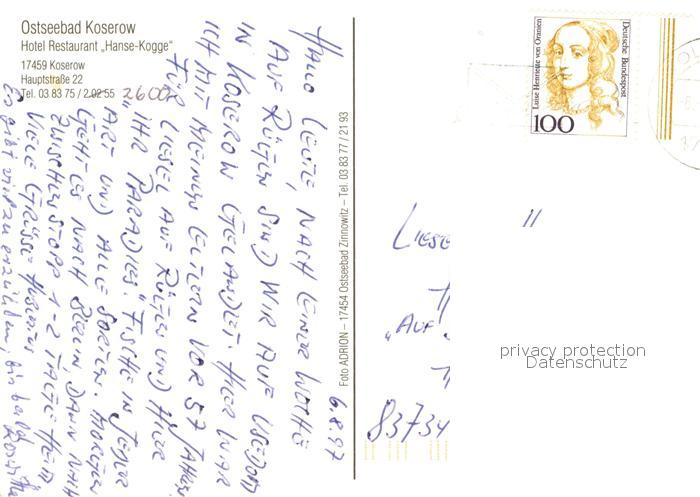 Ostseebad Koserow
Hotel Restaurant „Hanse-Kogge"
17459 Koserow
Hauptstraße 22
Tel. 03 83 75 / 2 02 55 2600
6.8.97
HALLO LEUTE, NACH EINER WOCHE
AUF RÜGEN SIND WIR AUF USEDOM
IN KOSEROW GELANDET. HIER WAR
ICH MIT MEINEN ELTERN VOR 57 JAHREN
FÜR LIESEL AUF RÜGEN UND HIER
„IHR PARADIES." FISCHE IN JEDER
ART UND ALLE SORTEN. MORGEN
GEHT ES NACH BERLIN DANN NACH
ZWISCHENSTOPP 1-2 TAGE HEIM
VIELE GRÜSSE HUBERTUS
Es gibt viel zu erzählen, bis bald
Foto ADRION – 17454 Ostseebad Zinnowitz – Tel. 03 83 77 / 21 93
Luise Henriette von Oranien
Deutsche Bundespost
100
LIESE
„AUF
83734
privacy protection
Datenschutz